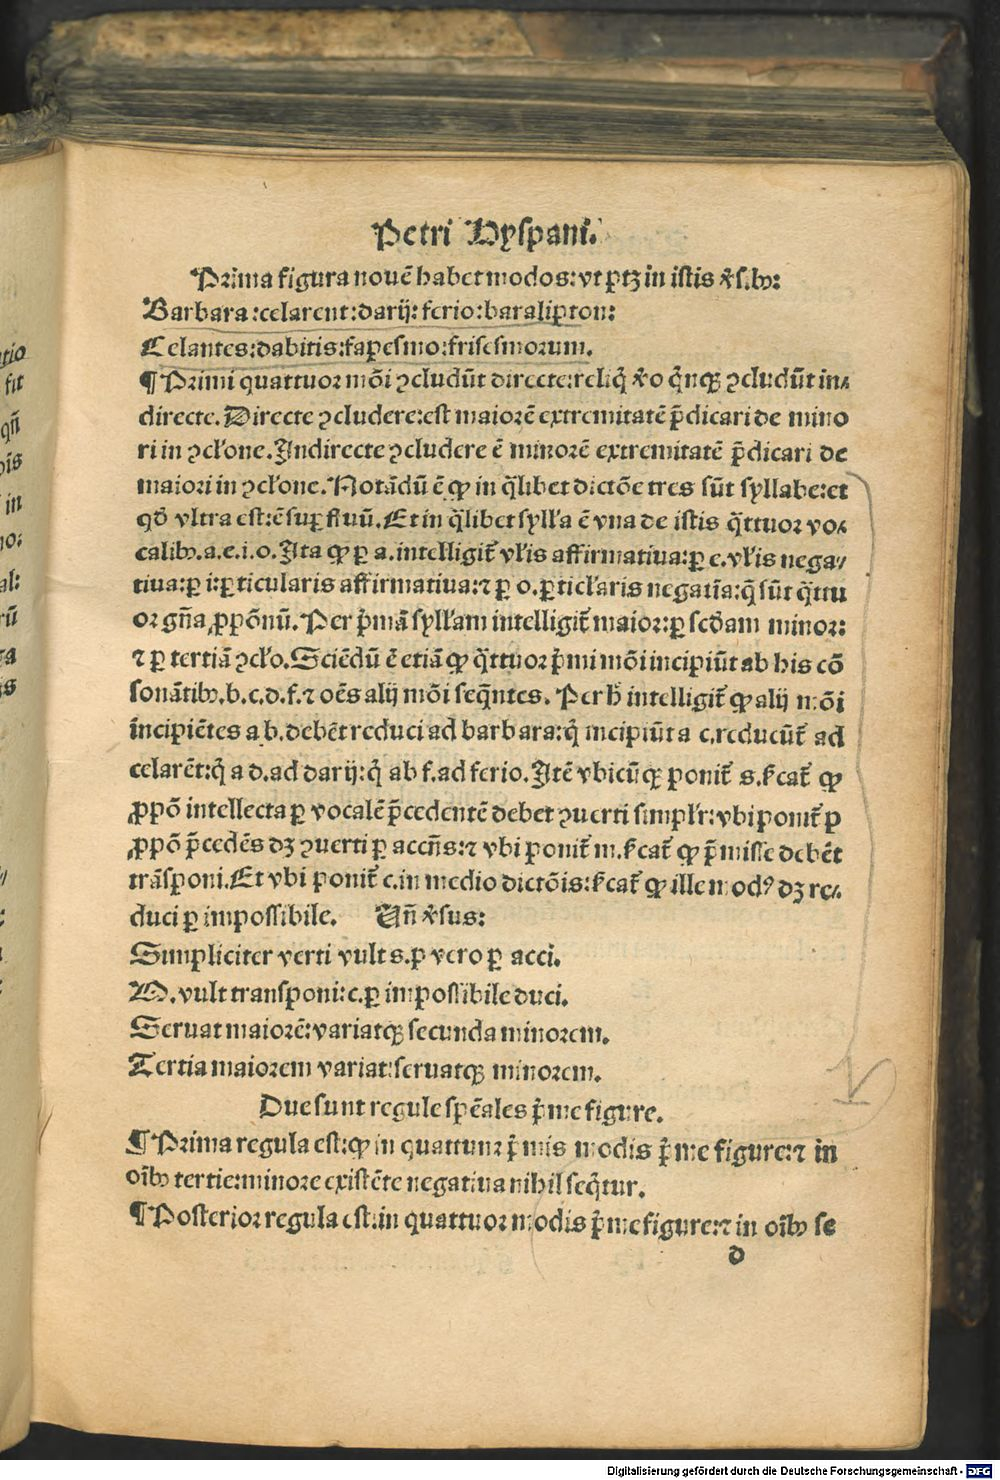 Petri Hyspani.
Prima figura nouē habet modos: vt ptꝫ in istis v̓sibꝫ:
Barbara: celarent: darij: ferio: baralipton:
Celantes: dabitis: fapesmo: frisesmorum.
¶ Primi quattuor mōi ꝯcludūt directe: reliq̄ v̓o q̄nqꝫ ꝯcludūt in-
directe. Directe ꝯcludere: est maiorē extremitatē p̄dicari de mino
ri in ꝯcl̓one. Indirecte ꝯcludere ē minorē extremitatē p̄dicari de
maiori in ꝯcl̓one. Notādū ē ꝙ in q̄libet dictōe tres sūt syllabe: et
qd̓ vltra est: ē suꝑfluū. Et in q̄libet syll̓a ē vna de istis q̄ttuor vo-
calibꝫ. a. e. i. o. Ita ꝙ ꝑ a. intelligit̄ vl̓is affirmatiua: ꝑ e. vl̓is nega-
tiua: ꝑ i: ꝑticularis affirmatiua: ⁊ ꝑ o. ꝑticl̓aris negatīa: q̄ sūt q̄ttu
or gn̄a ꝓpōnū. Per p̄mā syll̓am intelligit̄ maior: ꝑ scd̓am minor:
⁊ ꝑ tertiā ꝯcl̓o. Sciēdū ē etiā ꝙ q̄ttuor p̄mi mōi incipiūt ab his cō
sonātibꝫ. b. c. d. f. ⁊ oēs alij mōi seq̄ntes. Per h̓ intelligit̄ ꝙ alij mōi
incipiētes a b. debēt reduci ad barbara: q̄ incipiūt a c. reducūt̄ ad
celarēt: q̄ a d. ad darij: q̄ ab f. ad ferio. Itē vbicūqꝫ ponit̄ s. s̓cat̄ ꝙ
ꝓpō intellecta ꝑ vocalē p̄cedentē debet ꝯuerti simpl̓r: vbi ponit̄ p
ꝓpō p̄cedēs dꝫ ꝯuerti ꝑ accn̄s: ⁊ vbi ponit̄ m. s̓cat̄ ꝙ p̄misse debēt
trāsponi. Et vbi ponit̄ c. in medio dictōis: s̓cat̄ ꝙ ille modꝰ dꝫ re-
duci ꝑ impossibile. Un̄ v̓sus:
Simpliciter verti vult s. p vero ꝑ acci.
M. vult transponi: c. ꝑ impossibile duci.
Seruat maiorē: variatqꝫ secunda minorem.
Tertia maiorem variat: seruatqꝫ minorem.
Due sunt regule spēales p̄me figure.
¶ Prima regula est: ꝙ in quattuor p̄mis modis p̄me figure: ⁊ in
oībꝫ tertie: minore existēte negatiua nihil seq̄tur.
¶ Posterior regula est. in quattuor modis p̄me figure: ⁊ in oībꝫ se
d
Digitalisierung gefördert durch die Deutsche Forschungsgemeinschaft - DFG